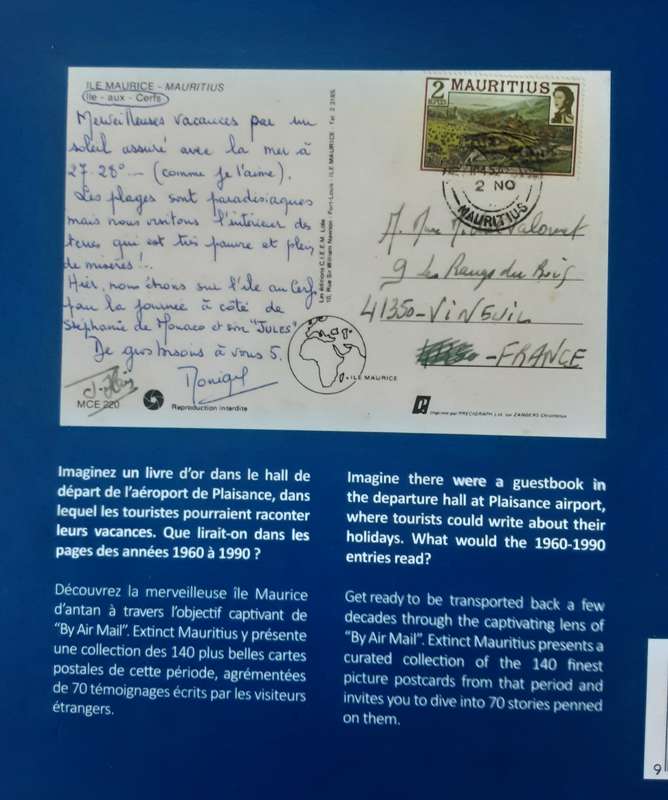 ILE MAURICE - MAURITIUS
île - aux - Cerfs
Merveilleuses vacances par un
soleil assuré avec la mer à
27-28° — (comme je l'aime).
Les plages sont paradisiaques
mais nous visitons l'intérieur des
terres qui est très pauvre et plein
de misères !..
Hier, nous étions sur l'île au Cerfs
pour la journée à côté de
Stéphanie de Monaco et son "JULES"
De gros bisous à vous 5.
Monique
MCE 220
Reproduction interdite
Les éditions C.I.E.E.M. Ltée
10, Rue Sir William Newton - Port-Louis - ILE MAURICE - Tel 2
ILE MAURICE
2
RUPEES
MAURITIUS
2 NO
MAURITIUS
9 Les Rangs du Bois
41350-VINEUIL
-FRANCE
Imprimé par PRECIGRAPH Ltd sur ZANDERS Chromolux
Imaginez un livre d'or dans le hall de
départ de l'aéroport de Plaisance, dans
lequel les touristes pourraient raconter
leurs vacances. Que lirait-on dans les
pages des années 1960 à 1990 ?
Découvrez la merveilleuse île Maurice
d'antan à travers l'objectif captivant de
"By Air Mail". Extinct Mauritius y présente
une collection des 140 plus belles cartes
postales de cette période, agrémentées
de 70 témoignages écrits par les visiteurs
étrangers.
Imagine there were a guestbook in
the departure hall at Plaisance airport,
where tourists could write about their
holidays. What would the 1960-1990
entries read?
Get ready to be transported back a few
decades through the captivating lens of
"By Air Mail". Extinct Mauritius presents a
curated collection of the 140 finest
picture postcards from that period and
invites you to dive into 70 stories penned
on them.
9